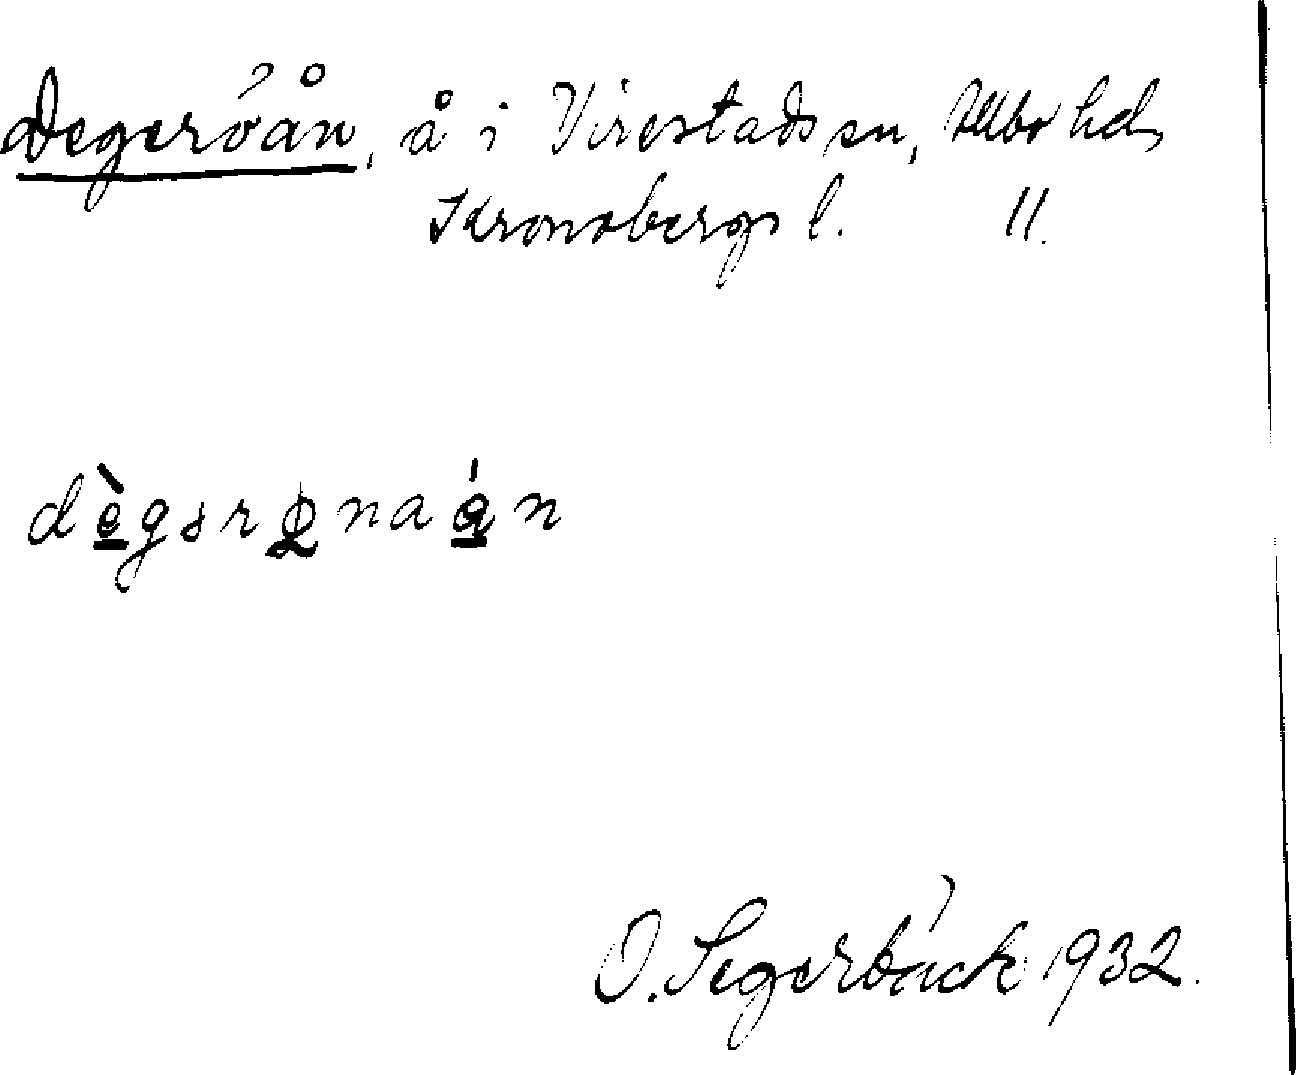 Degeröån, å i Virestads sn, Allbo hd,
Kronobergs l. 11.
dègərǫnaán
O. Segerbäck 1932.